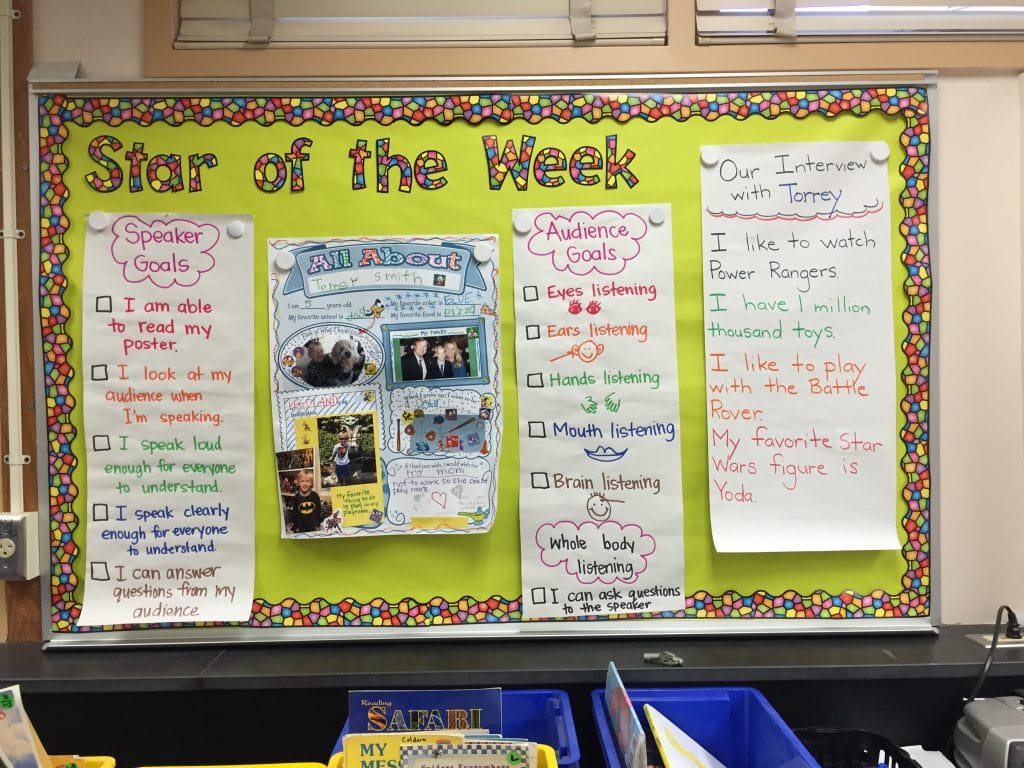 Star of the Week
Speaker
Goals
I am able
to read my
poster.
I look at my
audience when
I'm speaking.
I speak loud
enough for everyone
to understand.
I speak clearly
enough for everyone
to understand.
I can answer
questions from my
audience.
All About
smith
I am years old.
My favorite color is BLUE
My favorite animal is
My favorite food is
My Family
LEGOLAND
My favorite
thing to do
is play in my
playroom.
If I had one wish, I would wish for
my mom
not to work so she could
play more
Audience
Goals
Eyes listening
Ears listening
Hands listening
Mouth listening
Brain listening
whole body
listening
I can ask questions
to the speaker
Our Interview
with Torrey
I like to watch
Power Rangers.
I have 1 million
thousand toys.
I like to play
with the Battle
Rover.
My favorite Star
Wars figure is
Yoda.
Reading
SAFARI
Caldera
MY
MES
Spiders Everywhere